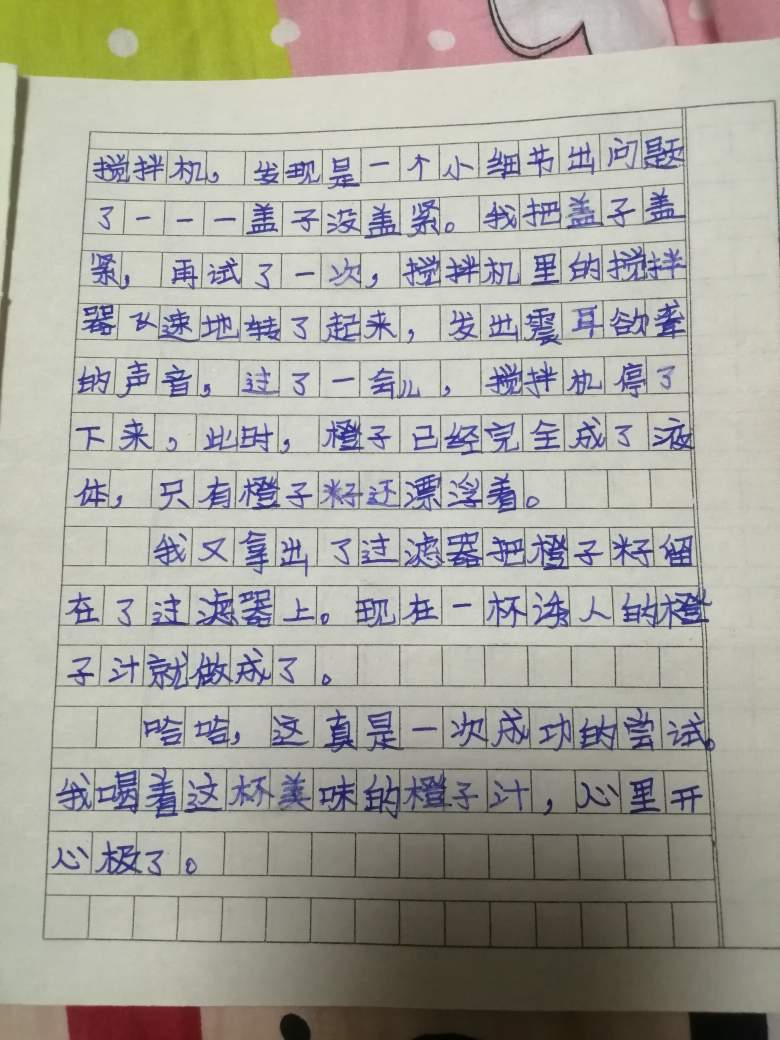 搅拌机，发现是一个小细节出问题
了———盖子没盖紧。我把盖子盖
紧，再试了一次，搅拌机里的搅拌
器飞速地转了起来，发出震耳欲聋
的声音，过了一会儿，搅拌机停了
下来，此时，橙子已经完全成了液
体，只有橙子籽还漂浮着。
我又拿出了过滤器把橙子籽留
在了过滤器上。现在一杯诱人的橙
子汁就做成了。
哈哈，这真是一次成功的尝试。
我喝着这杯美味的橙子汁，心里开
心极了。